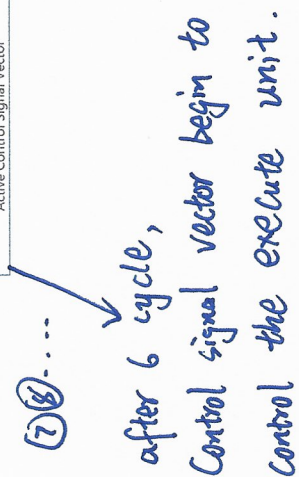 Active Control Signal Vector
⑦⑧....
after 6 cycle,
Control signal vector begin to
control the execute unit.